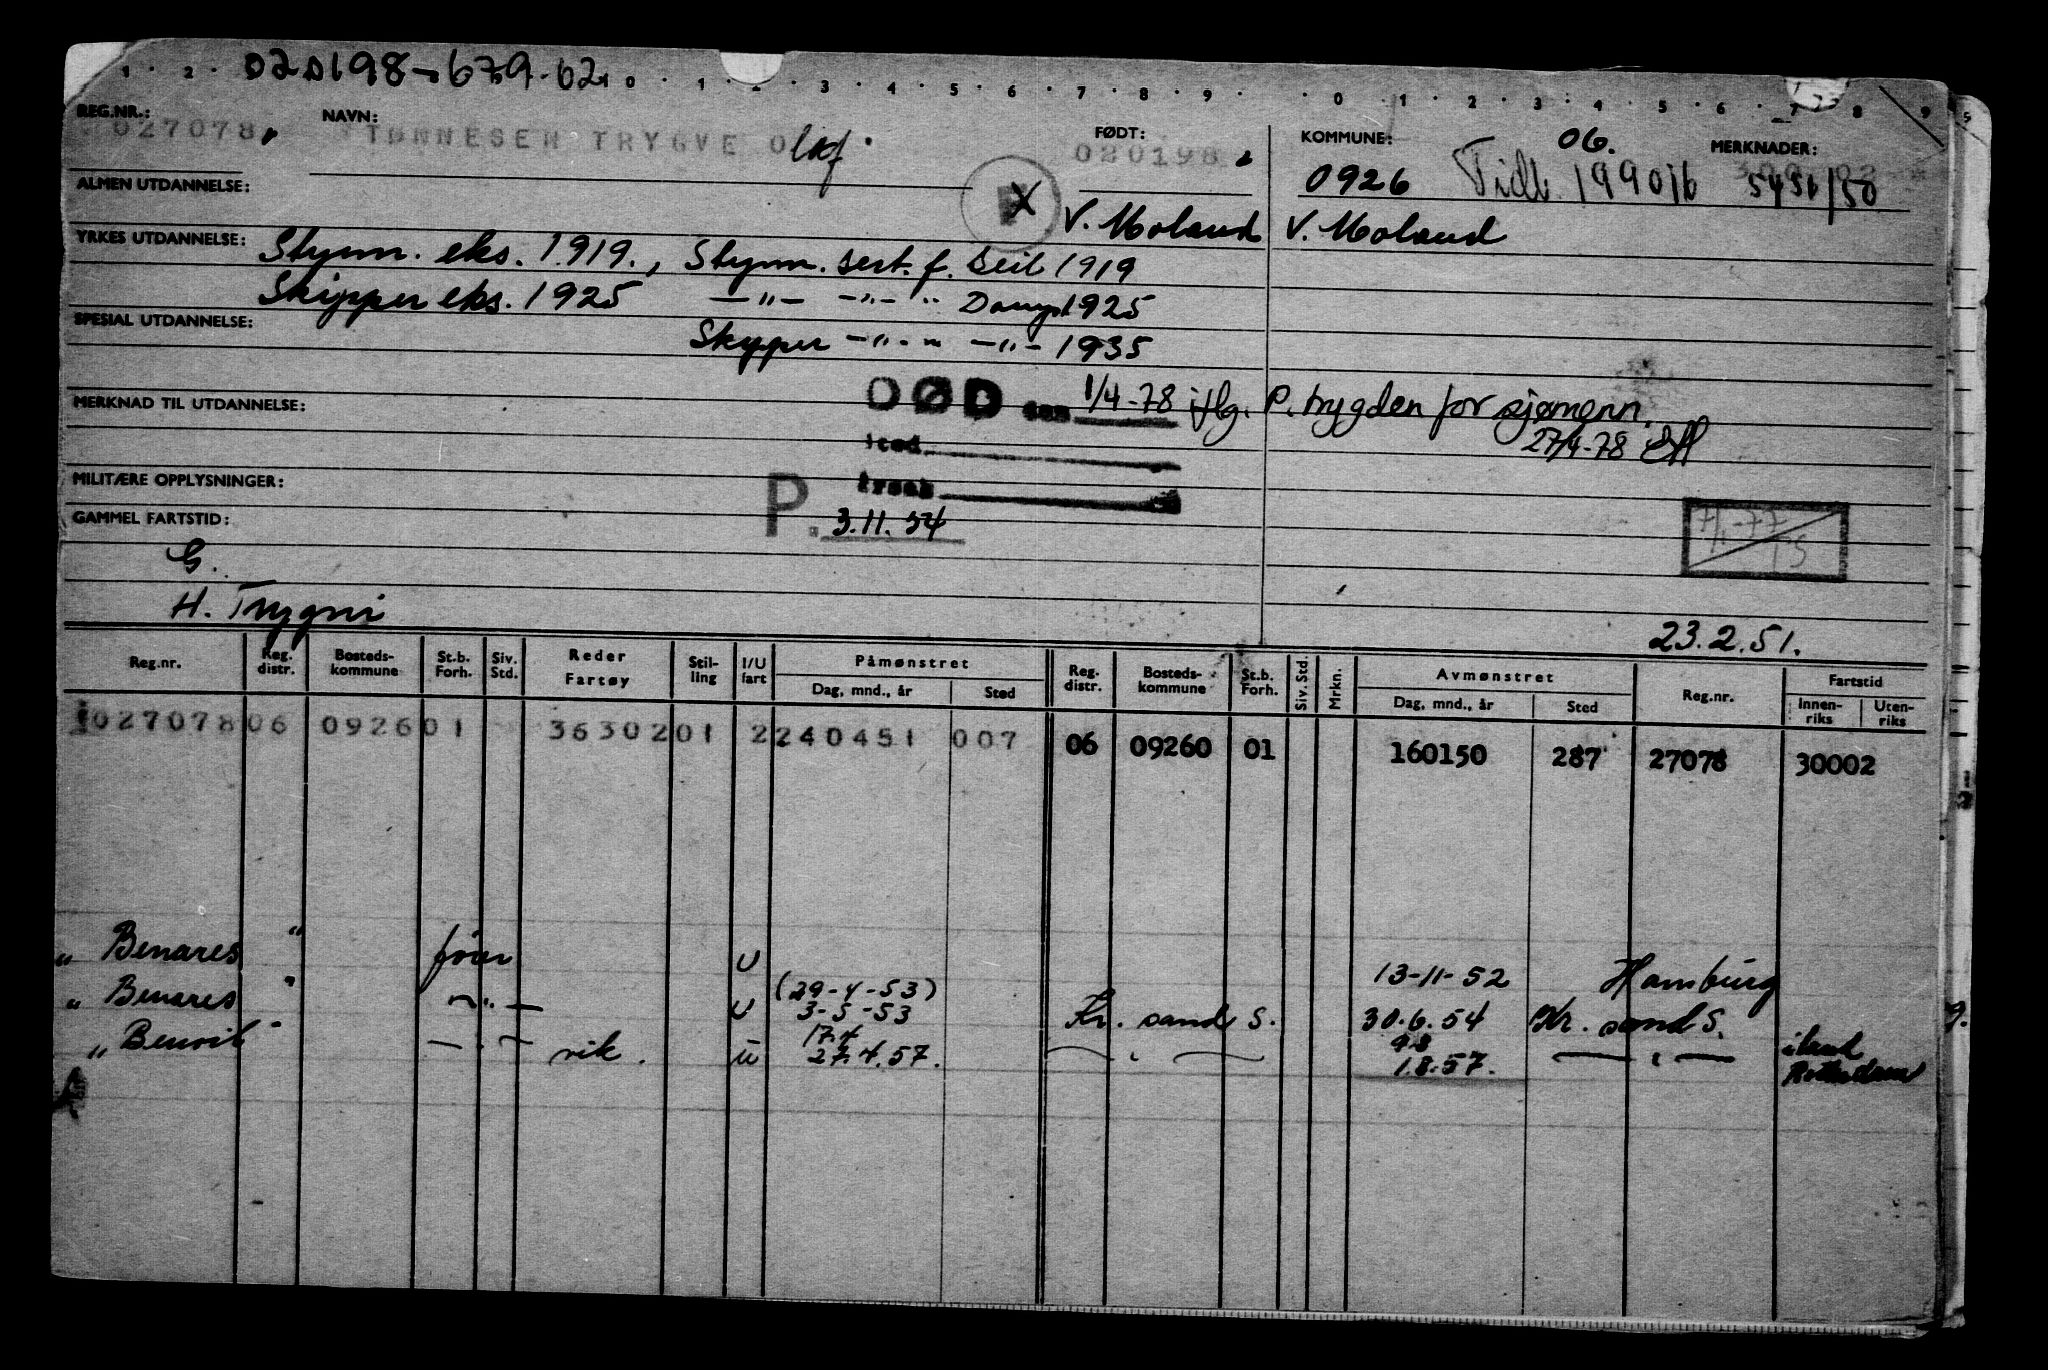 020198-679.62
REG.NR.: 027078. NAVN: TØNNESEN TRYGVE Olaf. FØDT: 020198 KOMMUNE: 0926 06. MERKNADER: 5431/50
ALMEN UTDANNELSE:
V. Moland V. Moland
YRKES UTDANNELSE: Styrm. eks. 1919., Styrm. sert. f. Seil 1919
Skipper eks. 1925 —"— —"— " Damp 1925
SPESIAL UTDANNELSE:
Skipper —"— " —"— 1935
DØD den 1/4-78 iflg. P. trygden for sjømenn.
MERKNAD TIL UTDANNELSE:
27/4-78
i sted
MILITÆRE OPPLYSNINGER: årsak
P. 3.11.54
7/1-77
GAMMEL FARTSTID:
G.
H. Trygni
23.2.51.
Reg.nr. Reg. distr. Bosteds-kommune St.b. Forh. Siv. Std. Reder Fartøy Stil-ling I/U fart Påmønstret Dag, mnd., år Sted Reg. distr. Bosteds-kommune St.b. Forh. Siv. Std. Mrkn. Avmønstret Dag, mnd., år Sted Reg.nr. Fartstid Innen-riks Uten-riks
027078 06 0926 01 36302 01 2 240451 007 06 09260 01 160150 287 27078 30002
" Benares " fører U 13-11-52 Hamburg
" Benares " —"— U (29-4-53) 3-5-53 Kr. sand S. 30.6.54 Kr. sand S.
" Benvik " —"— vik. u 17.4 27.4.57. —"— 9.8 1.8.57. —"— i land Rotterdam